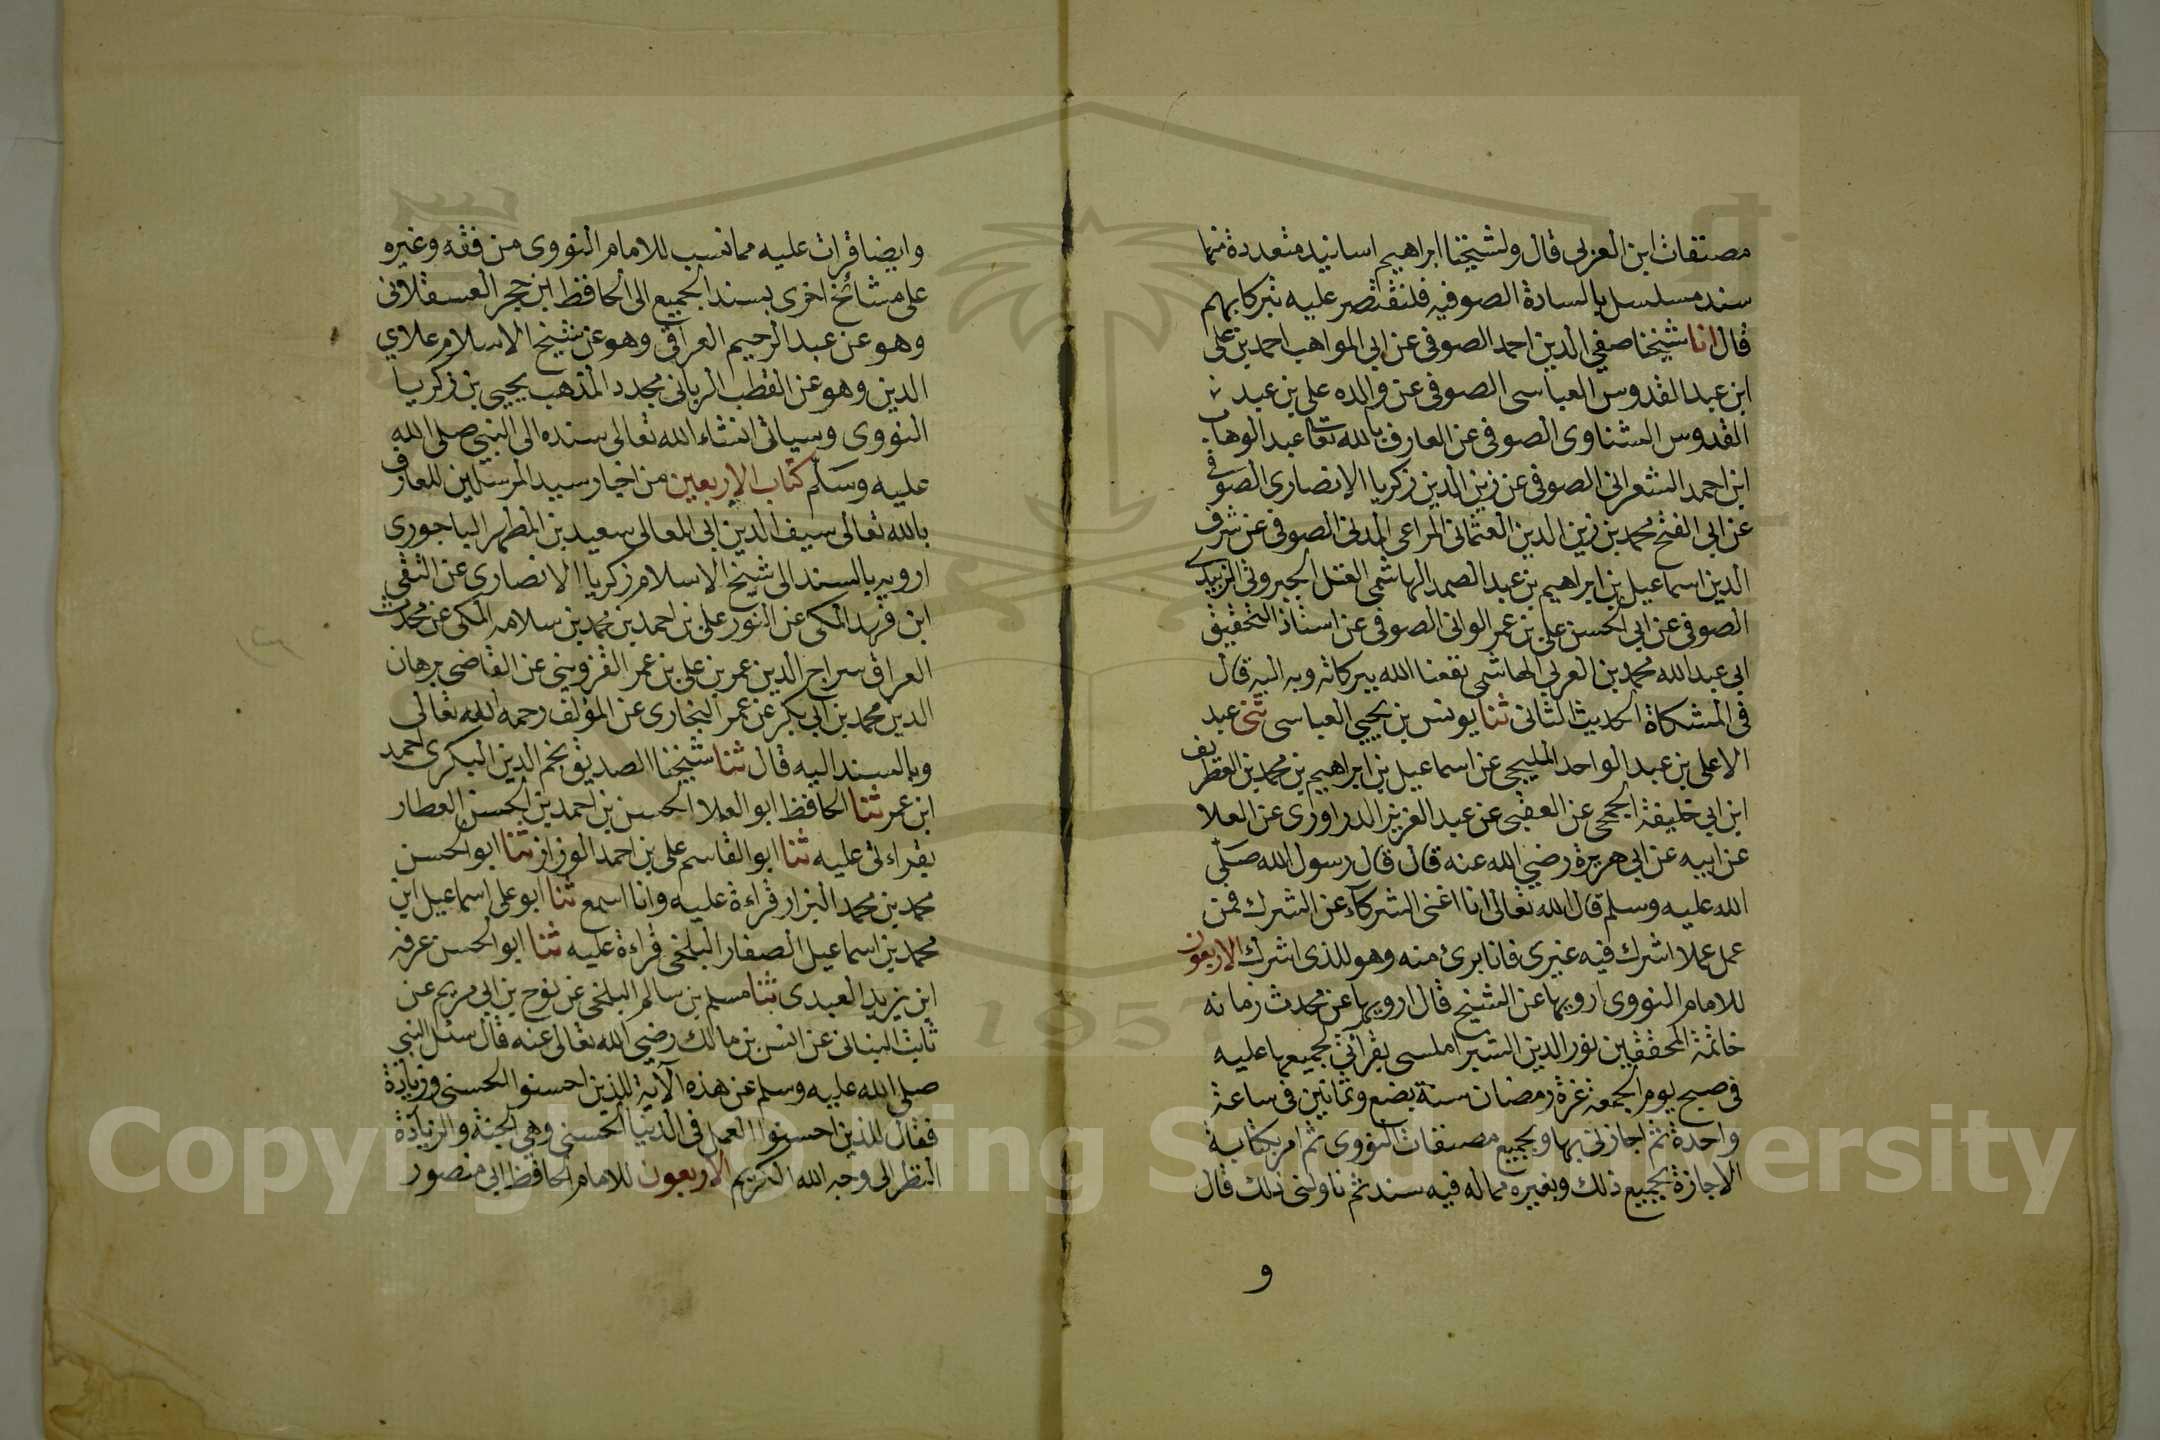 مصنفات ابن العربي قال ولشيخنا ابراهيم اسانيد متعددة منها
سند مسلسل بالسادة الصوفيه فلنقتصر عليه تبركا بهم
قال انا شيخنا صفي الدين احمد الصوفي عن ابي المواهب احمد بن علي
ابن عبد القدوس العباسى الصوفي عن والده علي بن عبد
القدوس الشناوى الصوفي عن العارف بالله تعالى عبد الوهاب
ابن احمد الشعراني الصوفي عن زين الدين زكريا الانصارى الصوفي
عن ابي الفتح محمد بن زين الدين العثمانى المراعي المدنى الصوفي عن شرف
الدين اسماعيل بن ابراهيم بن عبد الصمد الهاشمى الجبروتي الزبيدى
الصوفي عن ابي الحسن علي بن عمر الوانى الصوفي عن استاذ التحقيق
ابي عبد الله محمد بن العربي الهاشمى نفعنا الله ببركاته وبه اليه قال
في المشكاة الحديث الثانى ثنا يونس بن يحيى العباسى ثنى عبد
الاعلى بن عبد الواحد المليحي عن اسماعيل بن ابراهيم بن محمد بن الغطريف
ابن ابي خليفة الجمحى عن القعنبى عن عبد العزيز الدراوردى عن العلا
عن ابيه عن ابي هريرة رضي الله عنه قال قال رسول الله صلى
الله عليه وسلم قال الله تعالى انا اغنى الشركآء عن الشرك فمن
عمل عملا اشرك فيه غيرى فانا برئ منه وهو للذى اشرك الاربعون
للامام النووى ارويها عن الشيخ قال ارويها عن محدث زمانه
خاتمة المحققين نور الدين الشبراملسى بقرائتى لجميعها عليه
فى صبح يوم الجمعة غرة رمضان سنة بضع وثمانين فى ساعة
واحدة ثم اجازنى بها وبجميع مصنفات النووى ثم امر بكتابة
الاجازة بجميع ذلك وبغيره مما له فيه سند ثم ناولنى ذلك قال
و
وايضا قرات عليه مما نسب للامام النووى من فقه وغيره
على مشائخ اخرى بسند الجميع الى الحافظ ابن حجر العسقلانى
وهو عن عبد الرحيم العراقي وهو عن شيخ الاسلام علاي
الدين وهو عن القطب الربانى مجدد المذهب يحيى بن زكريا
النووى وسياتى انشاء الله تعالى سنده الى النبي صلى الله
عليه وسلم كتاب الاربعين من اخبار سيد المرسلين للعارف
بالله تعالى سيف الدين ابى المعالى سعيد بن المطهر الباجورى
ارويه بالسند الى شيخ الاسلام زكريا الانصارى عن التقى
ابن فهد المكى عن النور على بن احمد بن محمد بن سلامه المكى عن محدث
العراق سراج الدين عمر بن على بن عمر القزوينى عن القاضى برهان
الدين محمد بن ابي بكر عن عمر البخارى عن المؤلف رحمه الله تعالى
وبالسند اليه قال ثنا شيخنا الصديق نجم الدين البكرى احمد
ابن عمر ثنا الحافظ ابو العلا الحسن بن احمد بن الحسن العطار
بقراءتى عليه ثنا ابو القاسم على بن احمد الوزان ثنا ابو الحسن
محمد بن محمد البزار قراءة عليه وانا اسمع ثنا ابو على اسماعيل ابن
محمد بن اسماعيل الصفار البلخى قراءة عليه ثنا ابو الحسن عرفه
ابن يزيد العبدى ثنا مسلم بن سالم البلخى عن نوح بن ابي مريم عن
ثابت البنانى عن انس بن مالك رضي الله تعالى عنه قال سئل النبي
صلى الله عليه وسلم عن هذه الآية للذين احسنوا الحسنى وزيادة
فقال للذين احسنوا العمل فى الدنيا الحسنى وهي الجنة والزيادة
النظر الى وجه الله الكريم الاربعون للامام الحافظ ابي منصور
1957
Copyright © King Saud University